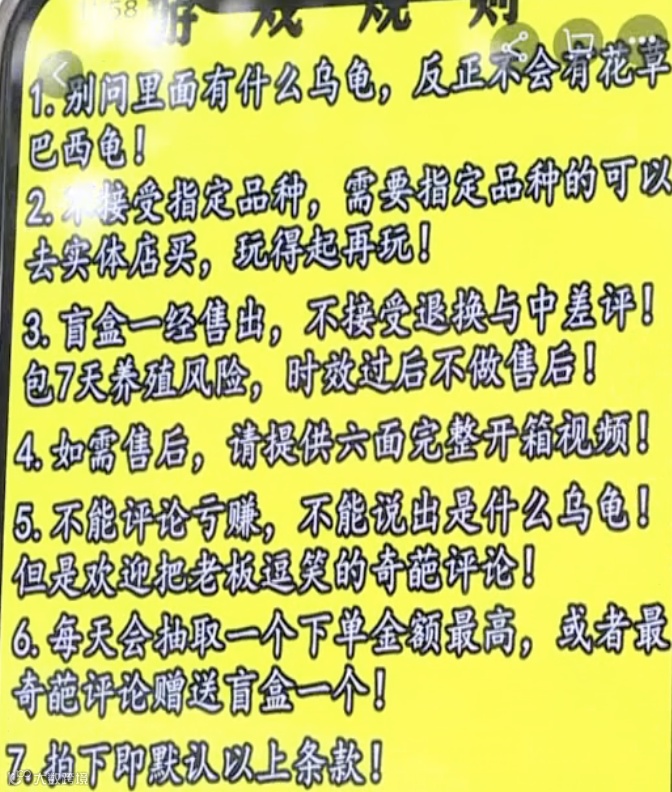 游戏规则
1. 别问里面有什么乌龟，反正不会有花草
巴西龟！
2. 不接受指定品种，需要指定品种的可以
去实体店买，玩得起再玩！
3. 盲盒一经售出，不接受退换与中差评！
包7天养殖风险，时效过后不做售后！
4. 如需售后，请提供六面完整开箱视频！
5. 不能评论亏赚，不能说出是什么乌龟！
但是欢迎把老板逗笑的奇葩评论！
6. 每天会抽取一个下单金额最高，或者最
奇葩评论赠送盲盒一个！
7. 拍下即默认以上条款！